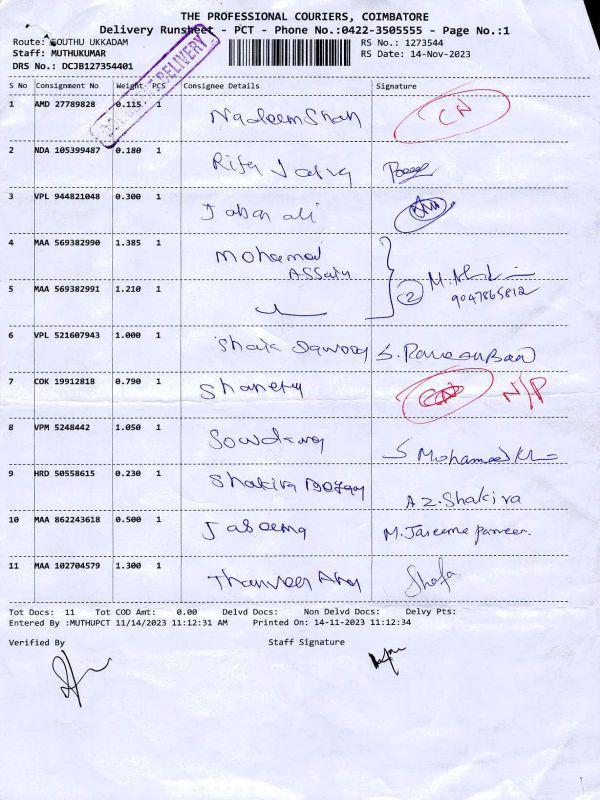 THE PROFESSIONAL COURIERS, COIMBATORE
Delivery Runsheet - PCT - Phone No.:0422-3505555 - Page No.:1
Route: SOUTHU UKKADAM
RS No.: 1273544
Staff: MUTHUKUMAR
RS Date: 14-Nov-2023
DRS No.: DCJB127354401
DELIVERY
S No Consignment No Weight PCS Consignee Details Signature
1 AMD 27789828 0.115 1 Nadeem Shah CN
2 NDA 105399487 0.180 1 Rifa
3 VPL 944821048 0.300 1 Jabar ali
4 MAA 569382990 1.385 1 Mohamad
ASSain
M.
5 MAA 569382991 1.210 1 2 9047865812
6 VPL 521607943 1.000 1 S.
7 COK 19912818 0.790 1 CN N/P
8 VPM 5248442 1.050 1 S Mohamed
9 HRD 50558615 0.230 1 Shakira A Z. Shakira
10 MAA 862243618 0.500 1 Jaseema M. Jaseema
11 MAA 102704579 1.300 1 Thanveer
Tot Docs: 11 Tot COD Amt: 0.00 Delvd Docs: Non Delvd Docs: Delvy Pts:
Entered By :MUTHUPCT 11/14/2023 11:12:31 AM Printed On: 14-11-2023 11:12:34
Verified By Staff Signature
1